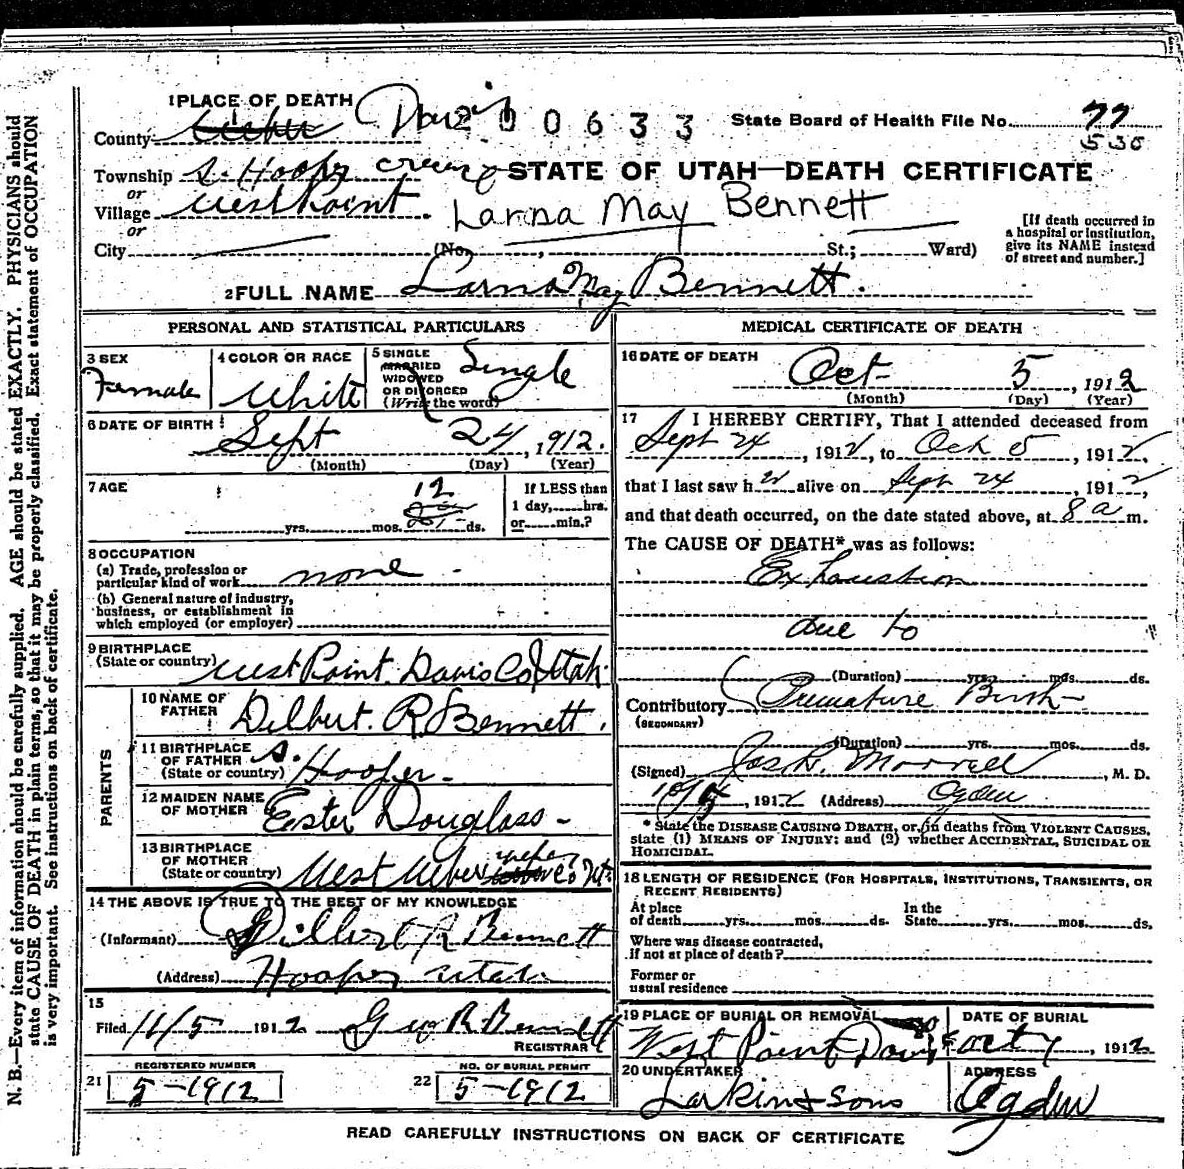 N. B.—Every item of information should be carefully supplied. AGE should be stated EXACTLY. PHYSICIANS should
state CAUSE OF DEATH in plain terms, so that it may be properly classified. Exact statement of OCCUPATION
is very important. See instructions on back of certificate.
1 PLACE OF DEATH
County Davis
0 0 6 3 3
State Board of Health File No. 77
535
Township S. Hooper
or
STATE OF UTAH—DEATH CERTIFICATE
Village West Point
or
Larna May Bennett
[If death occurred in
a hospital or institution,
give its NAME instead
of street and number.]
City (No. , St.; Ward)
2 FULL NAME Larna May Bennett.
PERSONAL AND STATISTICAL PARTICULARS
3 SEX
Female
4 COLOR OR RACE
White
5 SINGLE
MARRIED
WIDOWED
OR DIVORCED
(Write the word)
Single
6 DATE OF BIRTH
Sept 24, 1912.
(Month) (Day) (Year)
7 AGE
12
yrs. mos. ds.
If LESS than
1 day, hrs.
or min.?
8 OCCUPATION
(a) Trade, profession or
particular kind of work none
(b) General nature of industry,
business, or establishment in
which employed (or employer)
9 BIRTHPLACE
(State or country) West Point. Davis Co Utah.
PARENTS
10 NAME OF
FATHER Dilbert. R. Bennett.
11 BIRTHPLACE
OF FATHER
(State or country) S. Hooper
12 MAIDEN NAME
OF MOTHER Ester Douglass
13 BIRTHPLACE
OF MOTHER
(State or country) West Weber Weber Co Ut.
14 THE ABOVE IS TRUE TO THE BEST OF MY KNOWLEDGE
(Informant) Dilbert R Bennett
(Address) Hooper Utah
15
Filed 11/5 1912 Geo R Bennett
REGISTRAR
REGISTERED NUMBER
21 5-1912
NO. OF BURIAL PERMIT
22 5-1912
MEDICAL CERTIFICATE OF DEATH
16 DATE OF DEATH
Oct 5, 1912
(Month) (Day) (Year)
17 I HEREBY CERTIFY, That I attended deceased from
Sept 24, 1912, to Oct 5, 1912,
that I last saw h alive on Sept 24, 1912,
and that death occurred, on the date stated above, at 8 a m.
The CAUSE OF DEATH* was as follows:
Exhaustion
due to
(Duration) yrs. mos. ds.
Contributory Premature Birth
(SECONDARY)
(Duration) yrs. mos. ds.
(Signed) Jos. R. Morrell, M. D.
10/5, 1912 (Address) Ogden
* State the DISEASE CAUSING DEATH, or, in deaths from VIOLENT CAUSES,
state (1) MEANS OF INJURY; and (2) whether ACCIDENTAL, SUICIDAL OR
HOMICIDAL.
18 LENGTH OF RESIDENCE (FOR HOSPITALS, INSTITUTIONS, TRANSIENTS, OR
RECENT RESIDENTS)
At place In the
of death yrs. mos. ds. State yrs. mos. ds.
Where was disease contracted,
if not at place of death?
Former or
usual residence
19 PLACE OF BURIAL OR REMOVAL
West Point Davis Co
DATE OF BURIAL
Oct 7, 1912
20 UNDERTAKER
Larkin & Sons
ADDRESS
Ogden
READ CAREFULLY INSTRUCTIONS ON BACK OF CERTIFICATE